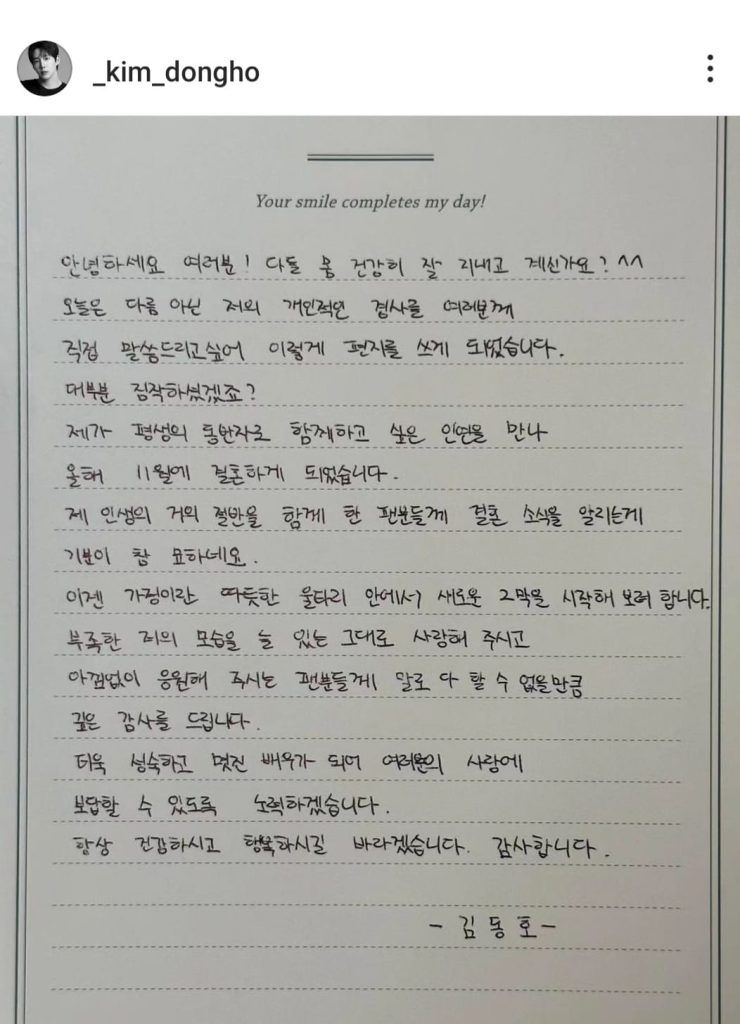 _kim_dongho
Your smile completes my day!
안녕하세요 여러분! 다들 몸 건강히 잘 지내고 계신가요? ^^
오늘은 다름 아닌 저의 개인적인 경사를 여러분께
직접 말씀드리고싶어 이렇게 편지를 쓰게 되었습니다.
대부분 짐작하셨겠죠?
제가 평생의 동반자로 함께하고 싶은 인연을 만나
올해 11월에 결혼하게 되었습니다.
제 인생의 거의 절반을 함께 한 팬분들께 결혼 소식을 알리는게
기분이 참 묘하네요.
이젠 가정이란 따듯한 울타리 안에서 새로운 2막을 시작해 보려 합니다.
부족한 저의 모습을 늘 있는 그대로 사랑해 주시고
아낌없이 응원해 주시는 팬분들께 말로 다 할 수 없을만큼
깊은 감사를 드립니다.
더욱 성숙하고 멋진 배우가 되어 여러분의 사랑에
보답할 수 있도록 노력하겠습니다.
항상 건강하시고 행복하시길 바라겠습니다. 감사합니다.
- 김동호 -